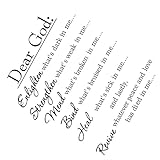 Dear God:
Enlighten what's dark in me...
Strengthen what's weak in me...
Mend what's broken in me...
Bind what's bruised in me...
Heal what's sick in me...
and lastly,
Revive whatever peace and love
has died in me...